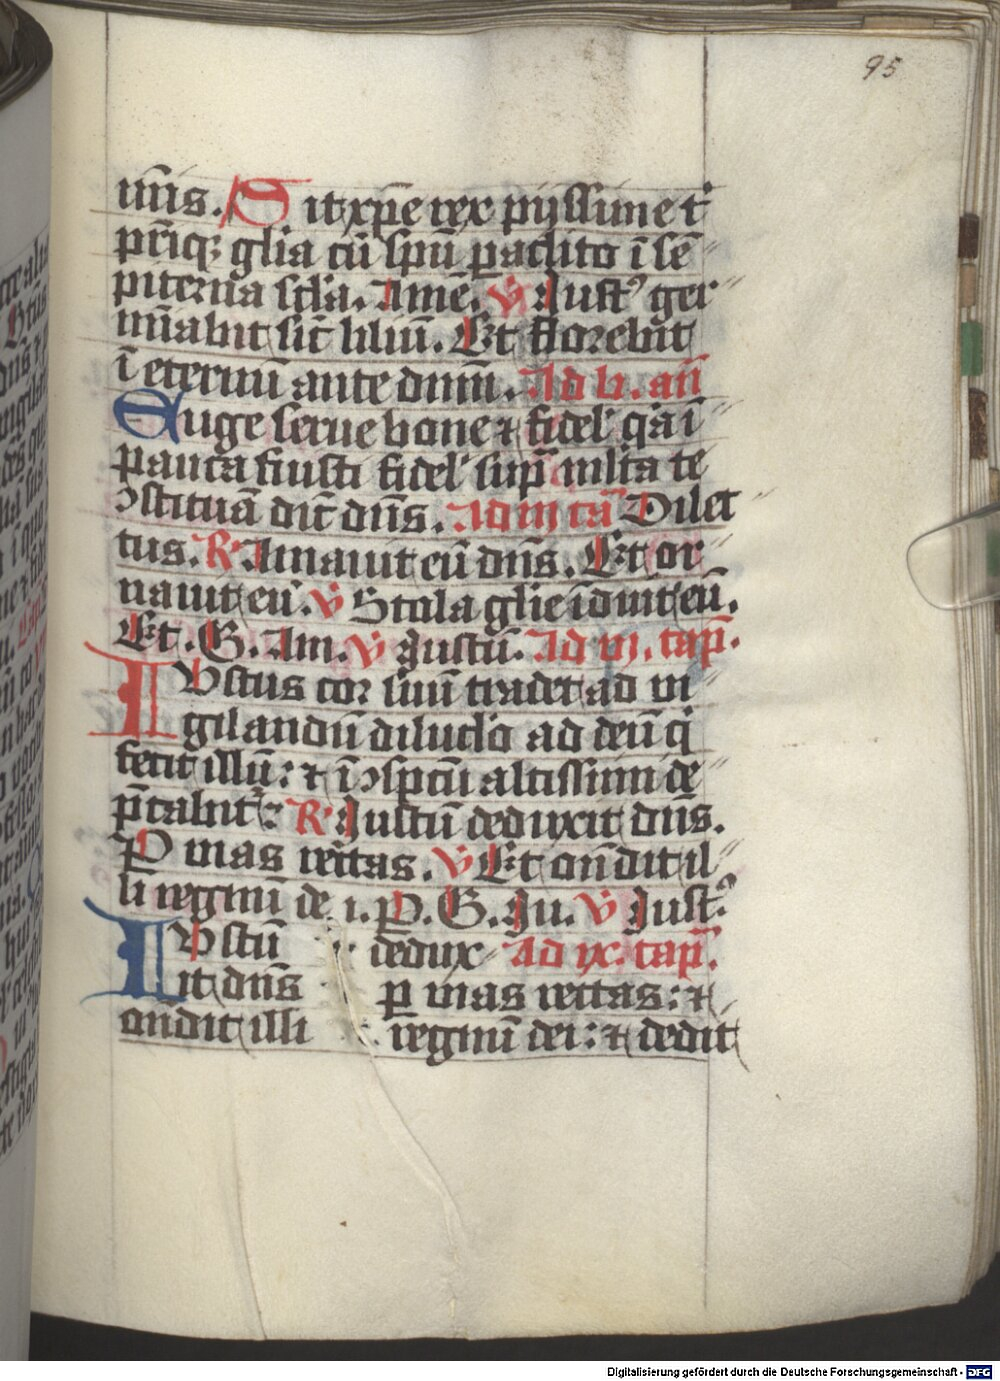 95
im̄s. Sit xp̄e rex pijssime t'
pr̄iq; gl̄ia cū sp̄u paclito ī sē
piterna scl̄a. Amē. V̄ Just⁹ ger
mīabit sic̄ liliū. Et florebit
ī eternū ante dnm̄. Ad b. an̄
Euge serue bone ⁊ fidel' q̇a ī
pauca fuisti fidel' sup̄ mlta te
ↄstituā dic̄ dn̄s. Ad iij ca Dilec
tus. R' Amauit eū dn̄s. Et or
nauit eū. V̄ Stola glīe īduit eū.
Et. G. Am. V̄ Justū. Ad vj. cap̄.
IUstus cor suū tradet ad vi
gilandū diluclo ad deū q̇
fecit illū: ⁊ ī ↄspc̄tū altissimi de
p̄cabit²: R' Justū deduxit dn̄s.
P uias rec̄tas. V̄ Et on̄dit il
li regnū de i. P. G. Ju. V̄ Just⁹.
IUstū dedux Ad ix. cap̄.
it dn̄s p uias rectas: ⁊
on̄dit illi regnū dei: ⁊ dedit
Digitalisierung gefördert durch die Deutsche Forschungsgemeinschaft - DFG